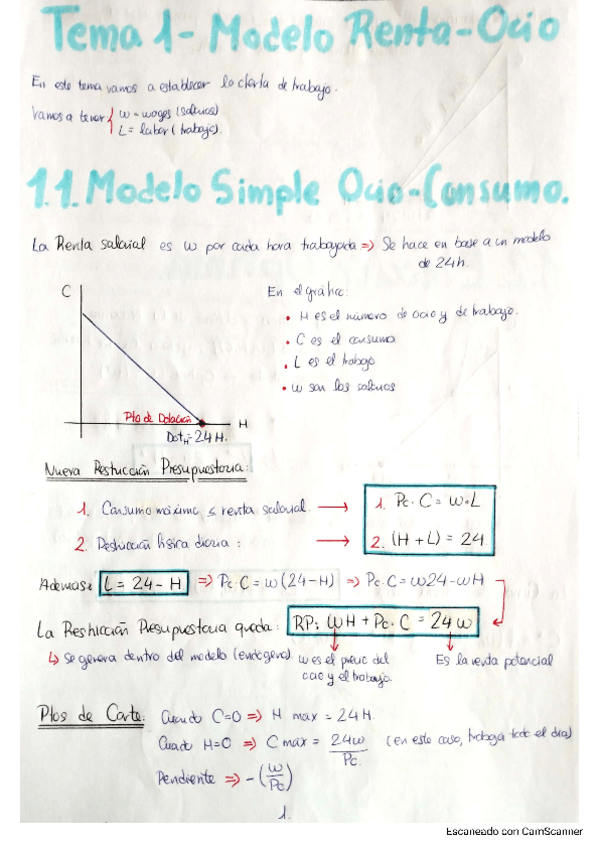 Tema 1- Modelo Renta-Ocio
En este tema vamos a establecer la oferta de trabajo.
Vamos a tener { w = wages (salarios)
L = labor (trabajo).
1.1. Modelo Simple Ocio-Consumo.
La Renta salarial es w por cada hora trabajada => Se hace en base a un modelo
de 24h.
C
En el gráfico:
• H es el número de ocio y de trabajo.
• C es el consumo
• L es el trabajo
• w son los salarios
Pto de Dotación
H
Dot H = 24 H.
Nueva Restricción Presupuestaria:
1. Consumo máximo ≤ renta salarial → 1. Pc · C = w · L
2. Restricción física diaria: → 2. (H + L) = 24
Además: L = 24 - H => Pc · C = w (24-H) => Pc · C = w24 - wH
La Restricción Presupuestaria queda: RP: wH + Pc · C = 24w
↳ Se genera dentro del modelo (endógena). w es el precio del
ocio y el trabajo.
Es la renta potencial
Ptos de Corte: Cuando C=0 => H max = 24H.
Cuando H=0 => C max = 24w/Pc (en este caso, trabaja todo el día)
Pendiente => - (w/Pc)
1.
Escaneado con CamScanner